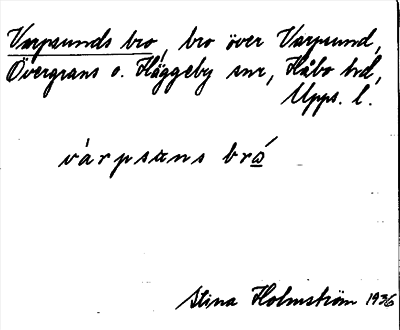 Varpsunds bro, bro över Varpsund,
Övergrans o. Häggeby snr, Håbo hd,
Upps. l.
várpsuns bró
Stina Holmström 1936